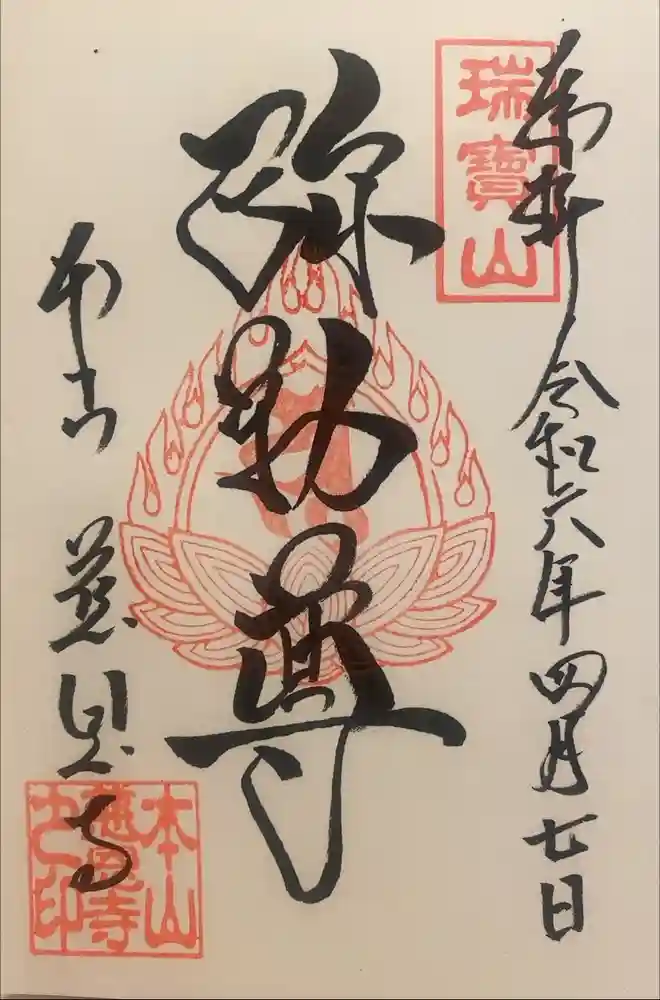 瑞寶山
奉拝 令和六年四月七日
弥勒尊
本山 慈恩寺
本山慈恩寺之印